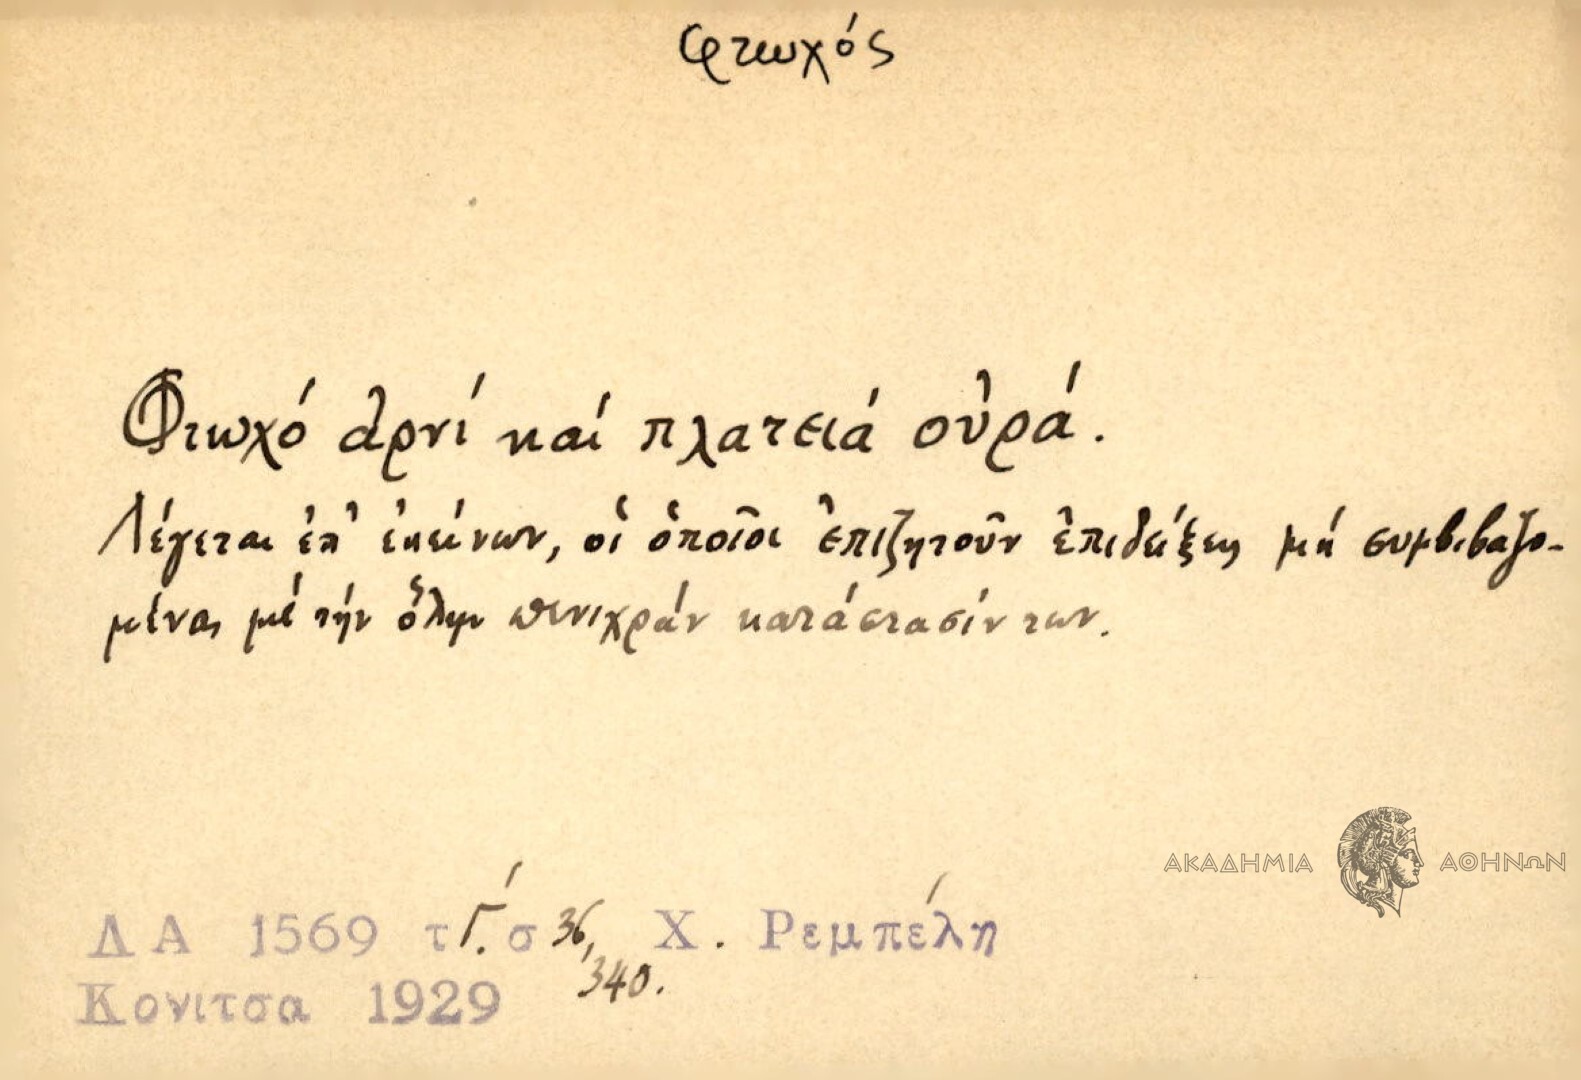 φτωχός
Φτωχό ἀρνί καί πλατειά οὐρά.
Λέγεται ἐπ' ἐκείνων, οἱ ὁποῖοι ἐπιζητοῦν ἐπιδείξεις μή συμβιβαζο-
μένας μέ τήν ὅλην πενιχράν κατάστασίν των.
ΑΚΑΔΗΜΙΑ ΑΘΗΝΩΝ
ΔΑ 1569 τ Γ΄. σ 36, Χ. Ρεμπέλη
340.
Κονιτσα 1929